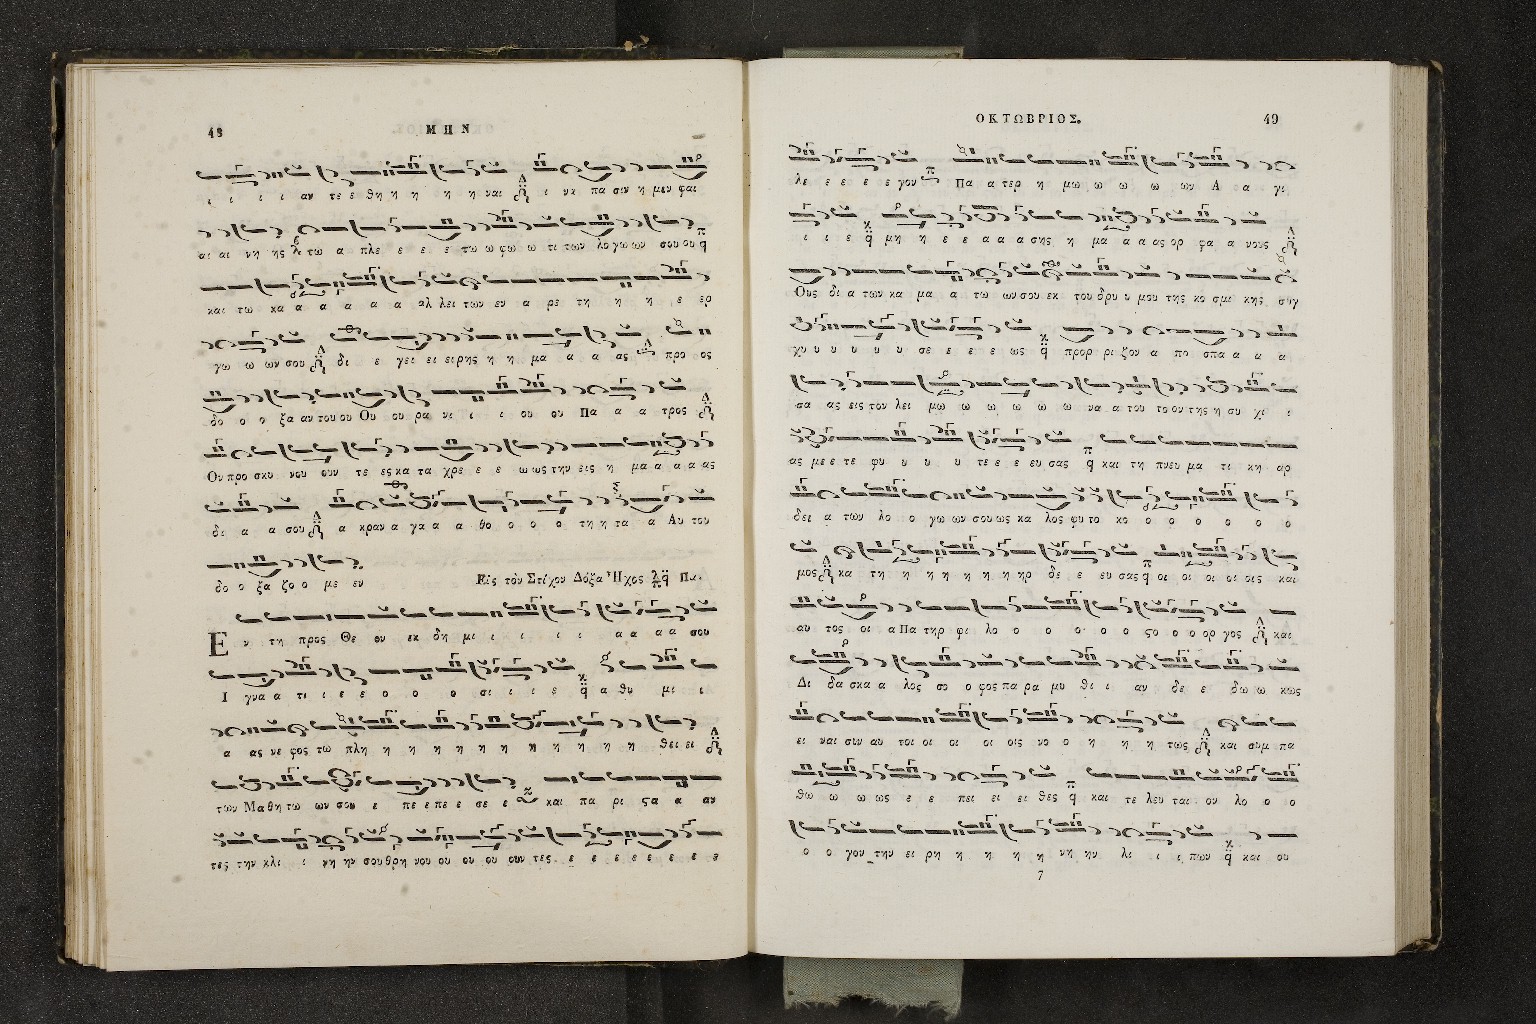 48
ΜΗΝ
ι ι ι ι αν τε ε θη η η η η ναι ι να πα σιν η μεν φαι
αι αι νη ης τω α πλε ε ε ε τω ω φω ω τι των λο γω ων σου ου
και τω κα α α α α α αλ λει των εν α ρε τη η η ε ερ
γω ω ων σου δι ε γει ει ειρης η η μα α α ας προ ος
δο ο ο ξα αν του ου Ου ου ρα νι ι ι ου ου Πα α α τρος
Ου προ σκυ νου ουν τε ες κα τα χρε ε ε ω ως την εις η μα α α α ας
δι α α σου α κραν α γα α α θο ο ο ο τη η τα α Αυ του
δο ο ξα ζο ο με εν
Εἰς τὸν Στίχον Δόξα Ἦχος Πα.
Ε ν τη προς Θε ον εκ δη μι ι ι ι ι α α α α σου
Ι γνα α τι ι ε ε ο ο ο σι ι ι ε α θυ μι ι
α ας νε φος τω πλη η η η η η η η η η η η θει ει
των Μα θη τω ων σου ε πε ε πε ε σε ε και πα ρι ςα α αν
τες την κλι ι νη ην σου θρη νου ου ου ου ουν τες ε ε ε ε ε ε ε ε
ΟΚΤΩΒΡΙΟΣ.
49
λε ε ε ε ε γον Πα α τερ η μω ω ω ω ων Α α γι
ι ι ε μη η ε ε α α α σης η μα α α ας ορ φα α νους
Ους δι α των κα μα α τω ων σου εκ του δρυ υ μου της κο σμι κης συγ
χυ υ υ υ υ σε ε ε ε ως προρ ρι ζον α πο σπα α α α
σα ας εις τον λει μω ω ω ω ω ω να α του το ου της η συ χι ι
ας με ε τε φυ υ υ υ τε ε ε ευ σας και τη πνευ μα τι κη αρ
δει α των λο ο γω ων σου ως κα λος φυ το κο ο ο ο ο ο ο
μος κα τη η η η η η ηρ δε ε ευ σας οι οι οι οι οις και
αυ τος οι α Πα τηρ φι λο ο ο ο ο ο ο ςο ο ο ορ γος και
Δι δα σκα α λος σο ο φος πα ρα μυ θι ι αν δε ε δω ω κως
ει ναι συν αυ τοι οι οι οι οις νο ο η η η τως και συμ πα
θω ω ω ως ε ε πει ει ει θες και τε λευ ται ον λο ο ο
ο ο γον την ει ρη η η η η νη ην λι ι ι πων και ου
7